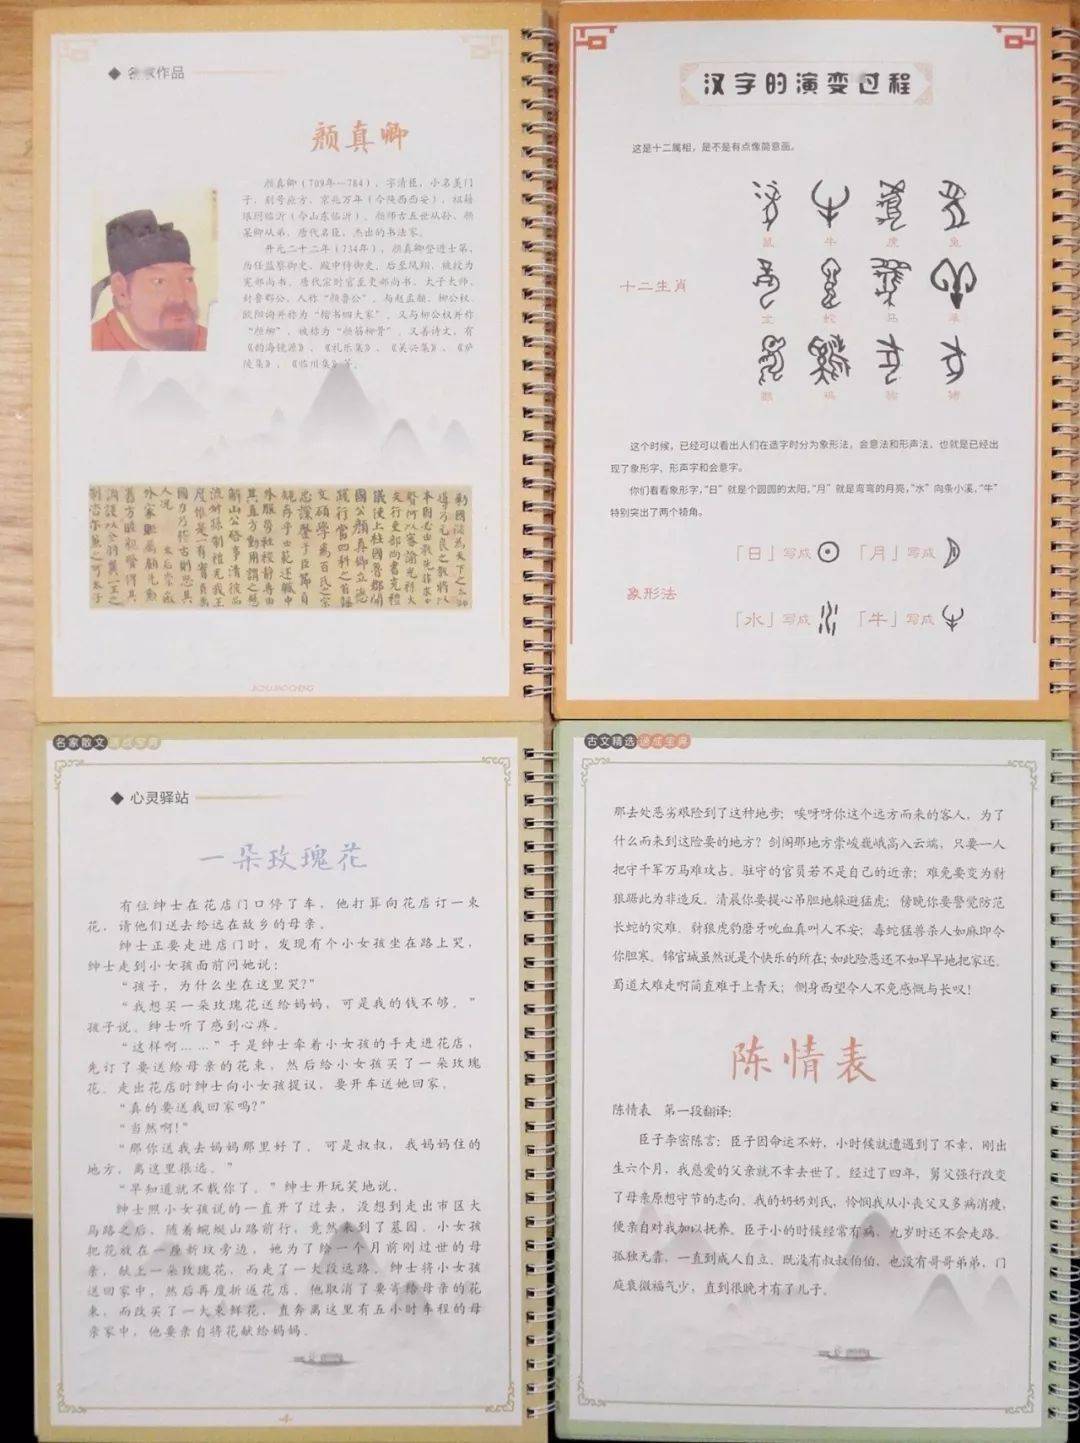 作品
颜真卿
颜真卿（709年—784），字清臣，小名羡门
子，别号应方，京兆万年（今陕西西安），祖籍
琅玡临沂（今山东临沂）。颜师古五世从孙、颜
杲卿从弟，唐代名臣，杰出的书法家。
开元二十二年（734年），颜真卿登进士第，
历任监察御史、殿中侍御史，后至凤翔，被授为
宪部尚书，唐代宗时官至吏部尚书、太子太师，
封鲁郡公，人称“颜鲁公”。与赵孟頫、柳公权、
欧阳询并称为“楷书四大家”。又与柳公权并称
“颜柳”，被称为“颜筋柳骨”。又善诗文，有
《韵海镜源》、《礼乐集》、《吴兴集》、《庐
陵集》、《临川集》等。
JICHUJIAOCHENG
汉字的演变过程
这是十二属相，是不是有点像简意画。
鼠 牛 虎 兔
十二生肖
龙 蛇 马 羊
猴 鸡 狗 猪
这个时候，已经可以看出人们在造字时分为象形法，会意法和形声法，也就是已经出
现了象形字、形声字和会意字。
你们看看象形字，“日”就是个圆圆的太阳，“月”就是弯弯的月亮，“水”向条小溪，“牛”
特别突出了两个犄角。
「日」写成 「月」写成
象形法
「水」写成 「牛」写成
名家散文速成宝典
心灵驿站
一朵玫瑰花
有位绅士在花店门口停了车，他打算向花店订一束
花，请他们送去给远在故乡的母亲。
绅士正要走进店门时，发现有个小女孩坐在路上哭，
绅士走到小女孩面前问她说：
“孩子，为什么坐在这里哭？”
“我想买一朵玫瑰花送给妈妈，可是我的钱不够。”
孩子说。绅士听了感到心疼。
“这样啊……”于是绅士牵着小女孩的手走进花店，
先订了要送给母亲的花束，然后给小女孩买了一朵玫瑰
花。走出花店时绅士向小女孩提议，要开车送她回家。
“真的要送我回家吗？”
“当然啊！”
“那你送我去妈妈那里好了。可是叔叔，我妈妈住的
地方，离这里很远。”
“早知道就不载你了。”绅士开玩笑地说。
绅士照小女孩说的一直开了过去，没想到走出市区大
马路之后，随着蜿蜒山路前行，竟然来到了墓园。小女孩
把花放在一座新坟旁边，她为了给一个月前刚过世的母
亲，献上一朵玫瑰花，而走了一大段远路。绅士将小女孩
送回家中，然后再度折返花店。他取消了要寄给母亲的花
束，而改买了一大束鲜花，直奔离这里有五小时车程的母
亲家中，他要亲自将花献给妈妈。
4
古文精选速成宝典
那去处恶劣艰险到了这种地步；唉呀呀你这个远方而来的客人，为了
什么而来到这险要的地方？剑阁那地方崇峻巍峨高入云端，只要一人
把守千军万马难攻占。驻守的官员若不是自己的近亲；难免要变为豺
狼踞此为非造反。清晨你要提心吊胆地躲避猛虎；傍晚你要警觉防范
长蛇的灾难。豺狼虎豹磨牙吮血真叫人不安；毒蛇猛兽杀人如麻即令
你胆寒。锦官城虽然说是个快乐的所在；如此险恶还不如早早地把家还。
蜀道太难走啊简直难于上青天；侧身西望令人不免感慨与长叹！
陈情表
陈情表　第一段翻译：
臣子李密陈言：臣子因命运不好，小时候就遭遇到了不幸，刚出
生六个月，我慈爱的父亲就不幸去世了。经过了四年，舅父强行改变
了母亲原想守节的志向。我的奶奶刘氏，怜悯我从小丧父又多病消瘦，
便亲自对我加以抚养。臣子小的时候经常有病，九岁时还不会走路。
孤独无靠，一直到成人自立。既没有叔叔伯伯，也没有哥哥弟弟，门
庭衰微福气少，直到很晚才有了儿子。